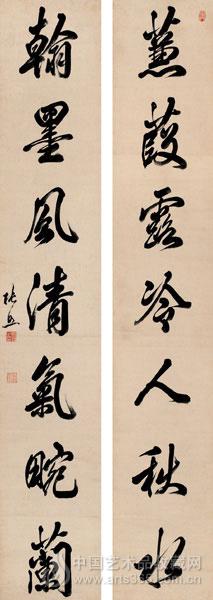 蒹葭露冷人秋水
翰墨風清氣畹蘭
張照
中国艺术品收藏网